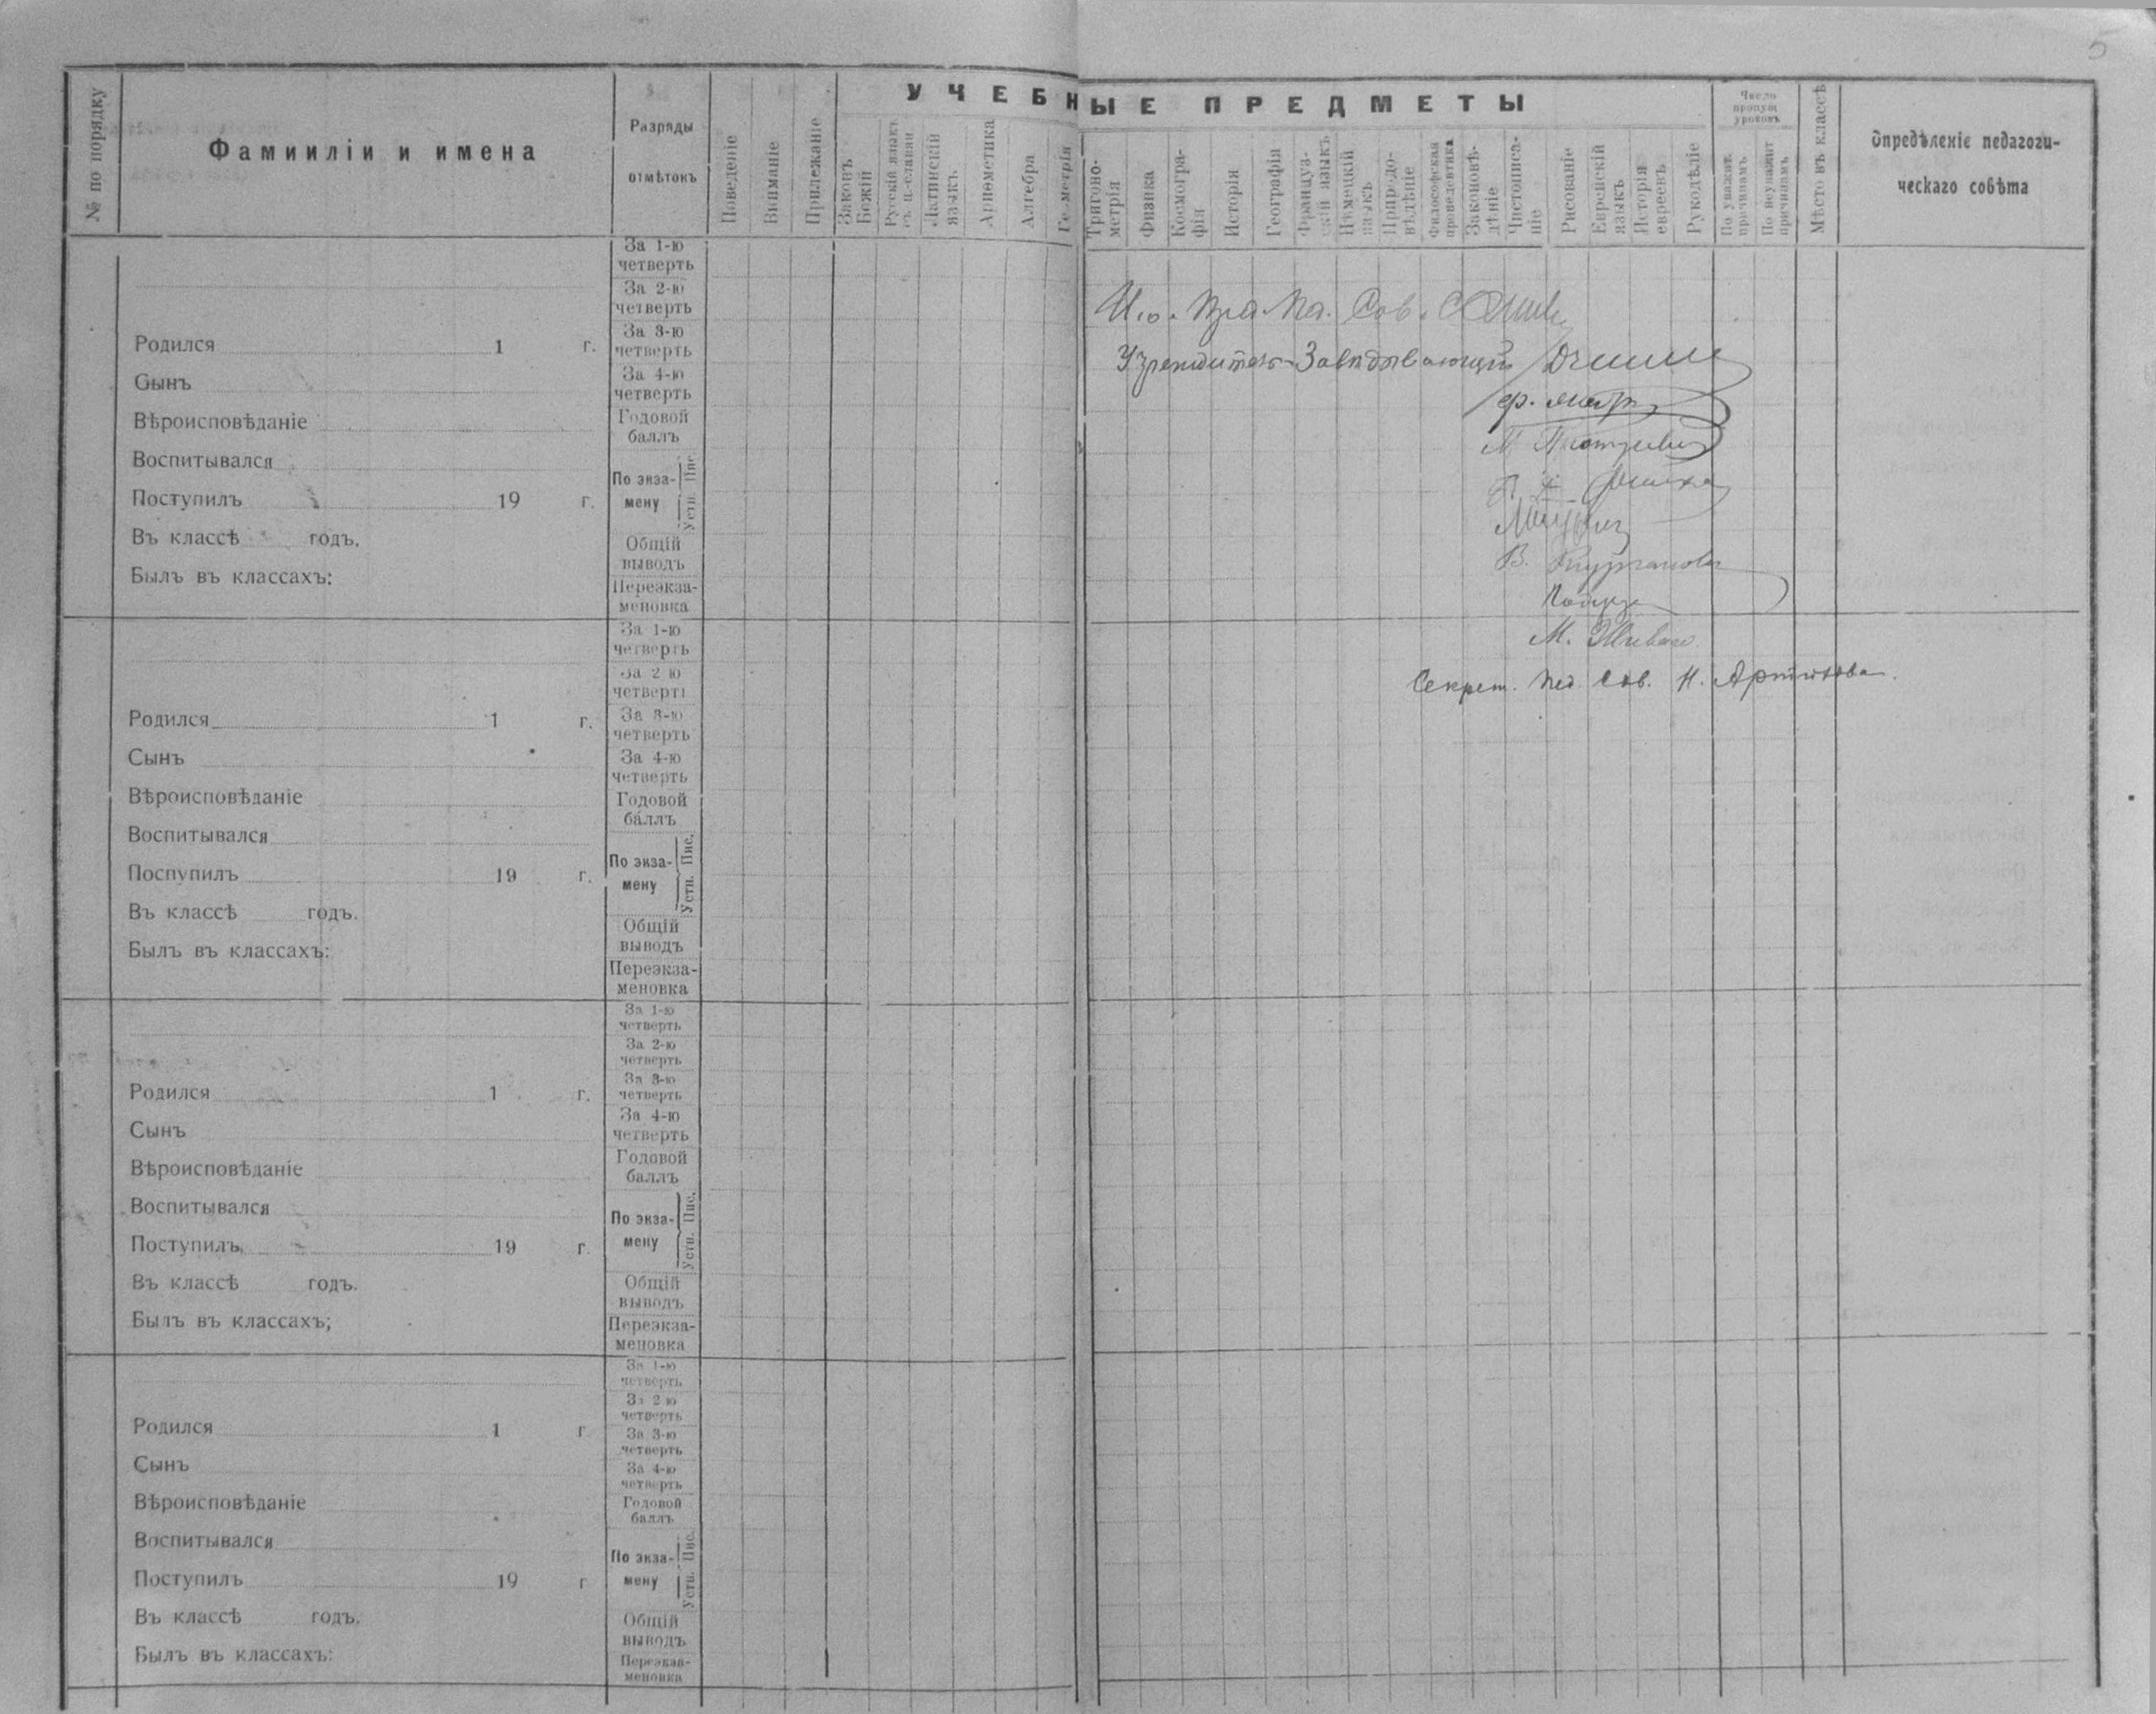 5
УЧЕБНЫЕ ПРЕДМЕТЫ
№ по порядку
Фамииліи и имена
Разряды
отмѣтокъ
Поведеніе
Вниманіе
Прилежаніе
Законъ
Божій
Русскій языкъ
съ ц.-славян
Латинскій
языкъ
Ариѳметика
Алгебра
Геометрія
Тригоно-
метрія
Физика
Космогра-
фія
Исторія
Географія
Француз-
скій языкъ
Нѣмецкій
языкъ
Природо-
вѣдѣніе
Философская
пропедевтика
Законовѣ-
дѣніе
Чистописа-
ніе
Рисованіе
Еврейскій
языкъ
Исторія
евреевъ
Рукодѣліе
Число
пропущ
уроковъ
По уважат.
причинамъ
По неуважит
причинамъ
Мѣсто въ классѣ
Опредѣленіе педагоги-
ческаго совѣта
Родился 1 г.
Сынъ
Вѣроисповѣданіе
Воспитывался
Поступилъ 19 г.
Въ классѣ годъ.
Былъ въ классахъ:
За 1-ю
четверть
За 2-ю
четверть
За 3-ю
четверть
За 4-ю
четверть
Годовой
баллъ
По экза-
мену
Пис.
Устн.
Общій
выводъ
Переэкза-
меновка
Сов.
Учредитель-Завѣдывающій
В. Курганова
М.
Секрет. Пед. Сов. Н. Артюхова.
Родился 1 г.
Сынъ
Вѣроисповѣданіе
Воспитывался
Поспупилъ 19 г.
Въ классѣ годъ.
Былъ въ классахъ:
За 1-ю
четверть
За 2 ю
четверть
За 3-ю
четверть
За 4-ю
четверть
Годовой
баллъ
По экза-
мену
Пис.
Устн.
Общій
выводъ
Переэкза-
меновка
Родился 1 г.
Сынъ
Вѣроисповѣданіе
Воспитывался
Поступилъ 19 г.
Въ классѣ годъ.
Былъ въ классахъ;
За 1-ю
четверть
За 2-ю
четверть
За 3-ю
четверть
За 4-ю
четверть
Годовой
баллъ
По экза-
мену
Пис.
Устн.
Общій
выводъ
Переэкза-
меновка
Родился 1 г
Сынъ
Вѣроисповѣданіе
Воспитывался
Поступилъ 19 г
Въ классѣ годъ.
Былъ въ классахъ:
За 1-ю
четверть
За 2 ю
четверть
За 3-ю
четверть
За 4-ю
четверть
Годовой
баллъ
По экза-
мену
Пис.
Устн.
Общій
выводъ
Переэкза-
меновка